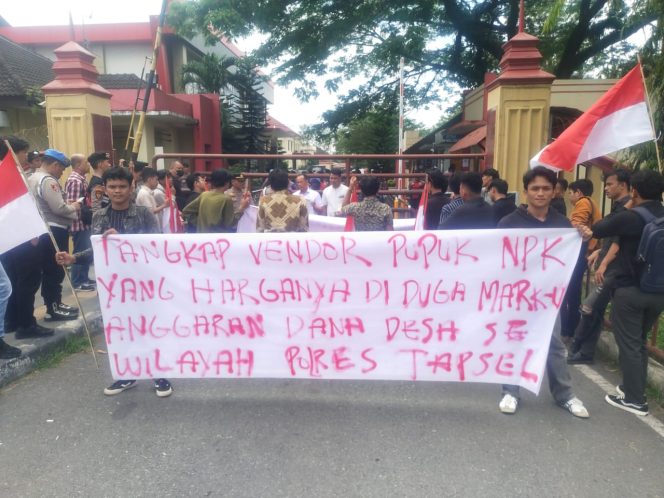 TANGKAP VENDOR PUPUK NPK
YANG HARGANYA DI DUGA MARK-U
ANGGARAN DANA DESA SE
WILAYAH POLRES TAPSEL